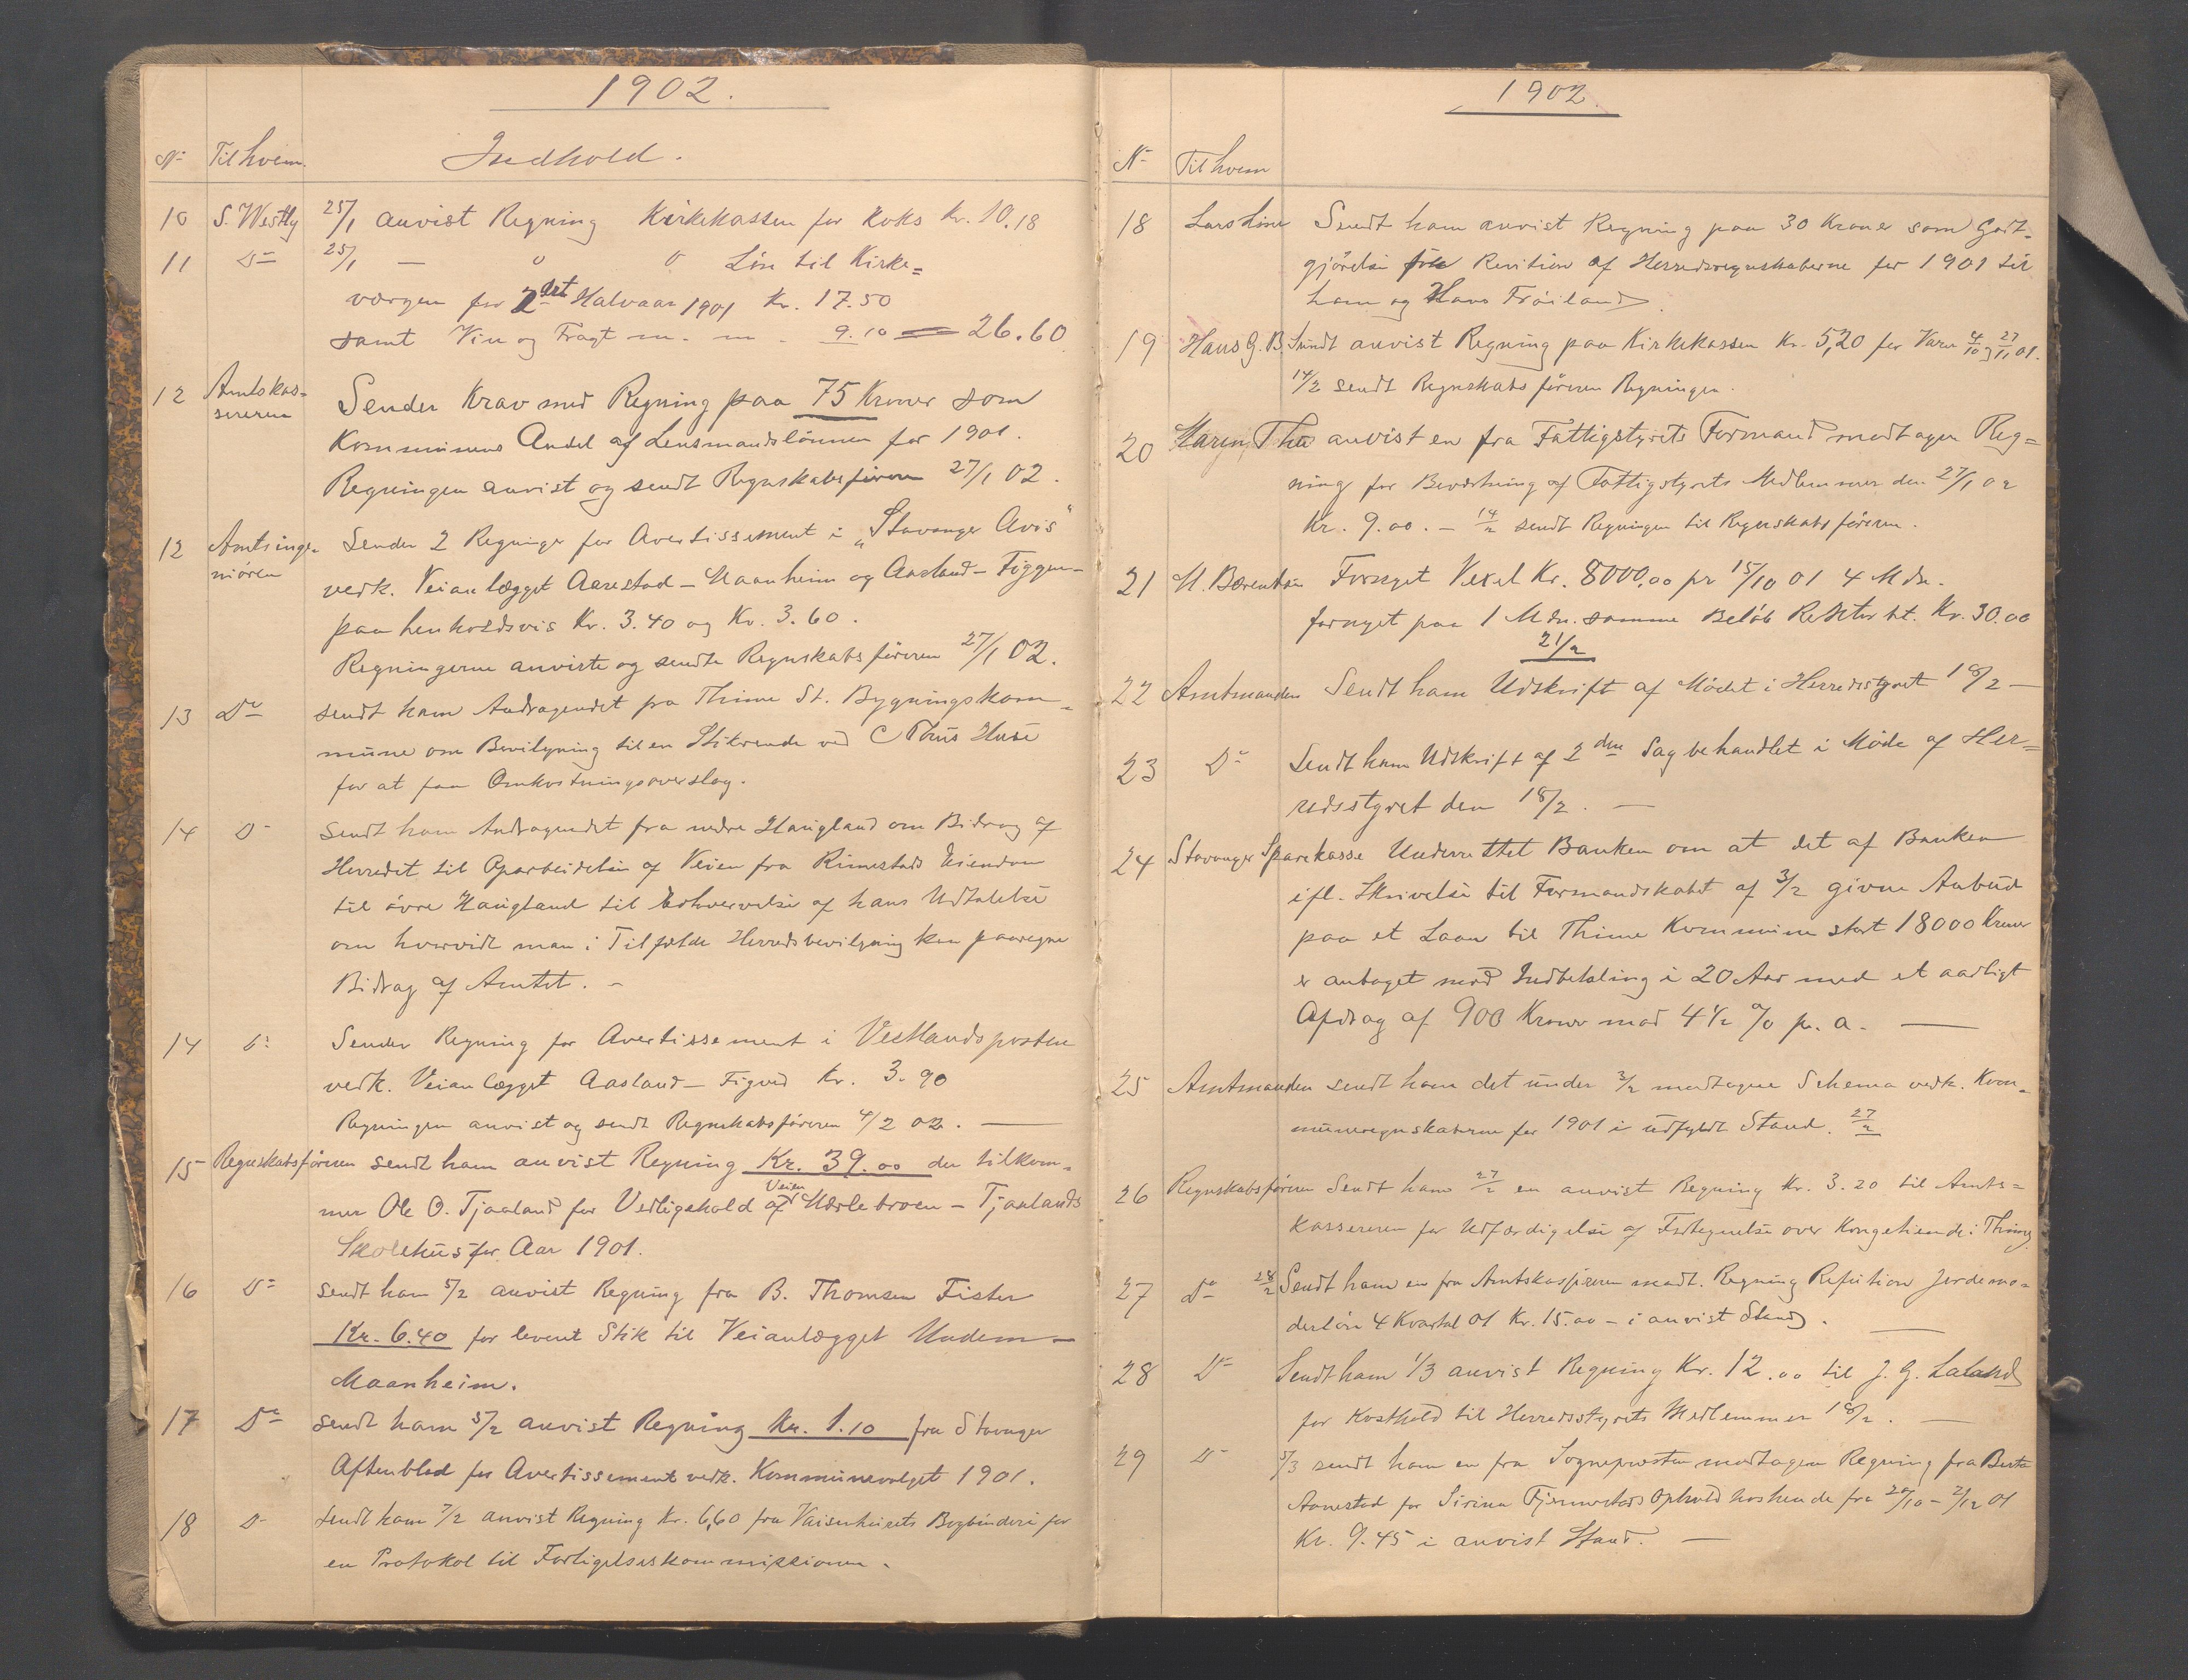 1902.
No Til hvem. Indhold.
10 S. Westly 25/1 anvist Regning Kirkekassen for Koks Kr. 10.18
11 Do 25/1 — " " Løn til Kirke=
værgen for 2det Halvaar 1901 Kr. 17.50
samt Vin og Fragt m. m. 9.10 = 26.60
12 Amtskas- Sender Krav med Regning paa 75 Kroner som
sereren Kommunens Andel af Lensmandslønnen for 1901.
Regningen anvist og sendt Regnskabsføreren 27/1 02.
12 Amtsinge- Sender 2 Regninger for Avertissement i „Stavanger Avis"
niøren vedk. Veianlægget Aarestad – Maanheim og Aasland – Figgen-
paa henholdsvis Kr. 3.40 og Kr. 3.60.
Regningerne anviste og sendte Regnskabsføreren 27/1 02.
13 Do sendt ham Andragendet fra Thime St. Bygningskom=
mune om Bevilgning til en Stikrende ved Thus Huse
for at faa Omkostningsoverslag.
14 Do sendt ham Andragendet fra nedre Haugland om Bidrag af
Herredet til Oparbeidelse af Veien fra Rimestads Eiendom
til øvre Haugland til Erhvervelse af hans Udtalelse
om hvorvidt man i Tilfælde Herredsbevilgning kan paaregne
Bidrag af Amtet. –
14 Do Sender Regning for Avertissement i Vestlandsposten
vedk. Veianlægget Aasland – Figved Kr. 3.90
Regningen anvist og sendt Regnskabsføreren 4/2 02. —
15 Regnskabsføreren sendt ham anvist Regning Kr. 39.00 der tilkom=
mer Ole O. Tjaaland for Vedligehold af Veien Mærlebroen – Tjaalands
Skolehus for Aar 1901.
16 Do sendt ham 5/2 anvist Regning fra B. Thomsen Fister
Kr. 6.40 for levert Stik til Veianlægget Undem –
Maanheim.
17 Do sendt ham 5/2 anvist Regning Kr. 1.10 fra Stavanger
Aftenblad for Avertissement vedk. Kommunevalget 1901.
18 Do sendt ham 7/2 anvist Regning Kr. 6,60 fra Vaisenhusets Bogbinderi for
en Protokol til Forligelseskommissionen.
1902.
No Til hvem
18 Lars Line Sendt ham anvist Regning paa 30 Kroner som Godt-
gjørelse for Revision af Herredsregnskaberne for 1901 til
ham og Hans Frøiland.
19 Hans G. B. Sendt anvist Regning paa Kirkekassen Kr. 5,20 for Varer 4/10 og 27/11 01.
14/2 sendt Regnskabsføreren Regningen.
20 Maren Thu anvist en fra Fattigstyrets Formand modtagen Reg=
ning for Beværtning af Fattigstyrets Medlemmer den 27/1 02
Kr. 9.00. – 14/2 sendt Regningen til Regnskabsføreren.
21 M. Bærentsen Fornyet Vexel Kr. 8000,00 pr 15/10 01 4 Mdr.
fornyet paa 1 Mdr. samme Beløb Renter bt. Kr. 30.00
21/2
22 Amtmanden Sendt ham Udskrift af Mødet i Herredsstyret 18/2 —
23 Do Sendt ham Udskrift af 2den Sag behandlet i Møde af Her=
redsstyret den 18/2. —
24 Stavanger Sparekasse Underrettet Banken om at det af Banken
ifl. Skrivelse til Formandskabet af 3/2 givne Anbud
paa et Laan til Thime Kommune stort 18000 Kroner
er antaget med Indbetaling i 20 Aar med et aarligt
Afdrag af 900 Kroner mod 4 1/2 % p. a. —
25 Amtmanden sendt ham det under 3/2 modtagne Schema vedk. Kom=
muneregnskaberne for 1901 i udfyldt Stand. 27/2
26 Regnskabsføreren Sendt ham 27/2 en anvist Regning Kr. 3.20 til Amts=
kassereren for Udfærdigelse af Fortegnelse over Kongetiende i Thime
27 Do 28/2 Sendt ham en fra Amtskassereren modt. Regning Refusion Jordemo=
derløn 4 Kvartal 01 Kr. 15.00 – i anvist Stand. —
28 Do Sendt ham 1/3 anvist Regning Kr. 12.00 til J. G. Laland
for Kosthold til Herredsstyrets Medlemmer 18/2. —
29 Do 5/3 sendt ham en fra Sognepresten modtagen Regning fra Berta
Aanestad for Sirina Ophold hos hende fra 20/10 – 2/12 01
Kr. 9.45 i anvist Stand. —